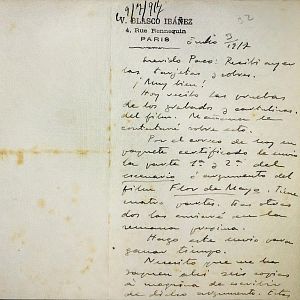 9/7/917
V. BLASCO IBÁÑEZ
4, Rue Rennequin
PARIS
Julio 5/1917
Querido Paco: Recibí ayer
las tarjetas y sobres.
¡Muy bien!
Hoy recibo las pruebas
de los grabados y cartulinas
del film. Mañana le
contestaré sobre esto.
Por el correo de hoy en
paquete certificado le envío
la parte 1ª y 2ª del
escenario o argumento del
film Flor de Mayo. Tiene
cuatro partes. Las otras
dos las enviaré en la
semana próxima.
Hago este envío para
ganar tiempo.
Necesito que me
saquen ahí seis copias
a máquina de escribir
de dicho argumento. Estas